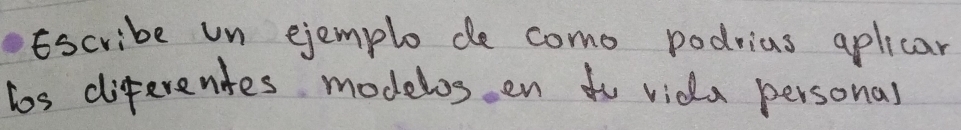 • Escribe un ejemplo de como podrias aplicar
los diferentes modelos en tu vida personal